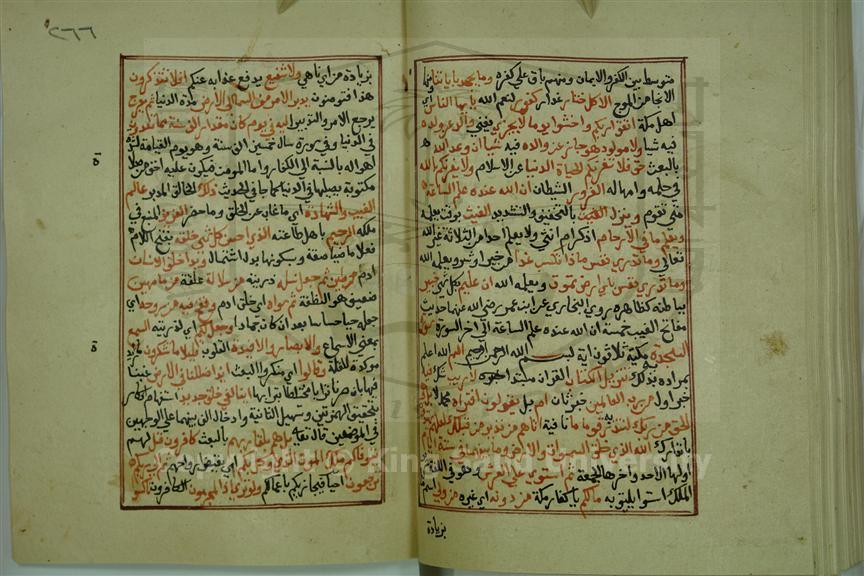 متوسط بين الكفر والايمان ومنهم باق على كفره وما يجحد باياتنا ومنها
الانجا من الموج الا كل ختار غدار كفور لنعم الله يا ايها الناس اي
اهل مكة اتقوا ربكم واخشوا يوما لا يجزي يغني والد عن ولده
فيه شيا ولا مولود هو جاز عن والده فيه شيا ان وعد الله حق
بالبعث حق فلا تغرنكم الحياة الدنيا عن الاسلام ولا يغرنكم بالله
في حلمه وامهاله الغرور الشيطان ان الله عنده علم الساعة
متى تقوم وينزل الغيث بالتخفيف والتشديد الغيث بوقت يعلمه
ويعلم ما في الارحام اذكر ام انثى ولا يعلم احدا من الثلاثة غير الله
تعالى وما تدري نفس ماذا تكسب غدا من خير او شر ويعلمه الله
وما تدري نفس باي ارض تموت ويعلمه الله ان الله عليم بكل شي خبير
بباطنه كظاهره روى البخاري عن ابن عمر رضي الله عنهما حديث
مفاتح الغيب خمسة ان الله عنده علم الساعة الى اخر السورة سورة
السجدة مكية ثلاثون اية بسم الله الرحمن الرحيم الم الله اعلم
بمراده بذلك تنزيل الكتاب القران مبتدا لا ريب شك فيه
خبر اول من رب العالمين خبر ثان ام بل يقولون افتراه محمد لا بل هو
الحق من ربك لتنذر به قوما ما نافية اتاهم من نذير من قبلك لعلهم يهتدون
بانذارك الله الذي خلق السموات والارض وما بينهما في ستة ايام
اولها الاحد واخرها الجمعة ثم استوى على العرش وهو في اللغة سرير
الملك استوا يليق به ما لكم يا كفار مكة من دونه اي غيره من ولي اسم ما
بزيادة
٢٦٦
بزيادة من اي ناصر ولا شفيع يدفع عذابه عنكم افلا تتذكرون
هذا فتومنون يدبر الامر من السما الى الارض مدة الدنيا ثم يعرج
يرجع الامر والتدبير اليه في يوم كان مقداره الف سنة مما تعدون
في الدنيا وفي سورة سال خمسين الف سنة وهو يوم القيامة لشدة
اهواله بالنسبة الى الكفار واما المومن فيكون عليه اخف من صلاة
مكتوبة يصليها في الدنيا كما جا في الحديث ذلك الخالق المدبر عالم
الغيب والشهادة اي ما غاب عن الخلق وما حضر العزيز المنيع في
ملكه الرحيم باهل طاعته الذي احسن كل شي خلقه بفتح اللام
فعلا ماضيا صفة وبسكونها بدل اشتمال وبدا خلق الانسان
ادم من طين ثم جعل نسله ذريته من سلالة علقة من ما مهين
ضعيف هو النطفة ثم سواه اي خلق ادم ونفخ فيه من روحه اي
جعله حيا حساسا بعد ان كان جمادا وجعل لكم اي لذريته السمع
بمعنى الاسماع والابصار والافيدة القلوب قليلا ما تشكرون ما زايدة
موكدة للقلة وقالوا اي منكروا البعث ايذا ضللنا في الارض غبنا
فيها بان صرنا ترابا مختلطا بترابها اينا لفي خلق جديد استفهام انكار
بتحقيق الهمزتين وتسهيل الثانية وادخال الف بينهما على الوجهين
في الموضعين قال تعالى بل هم بلقا ربهم بالبعث كافرون قل لهم
يتوفاكم ملك الموت الذي وكل بكم اي بقبض ارواحكم ثم الى ربكم
ترجعون احيا فيجازيكم باعمالكم ولو ترى اذ المجرمون الكافرون ناكسوا